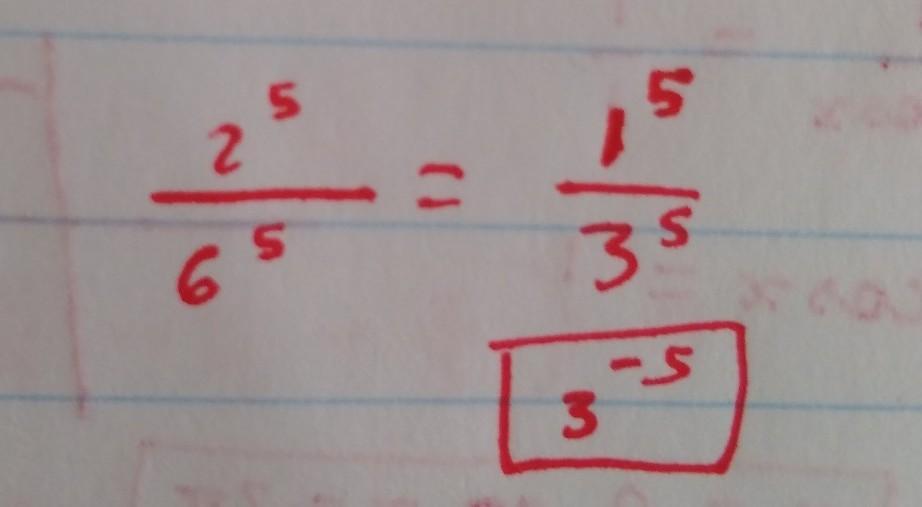 2^5 / 6^5 = 1^5 / 3^5
3^-5